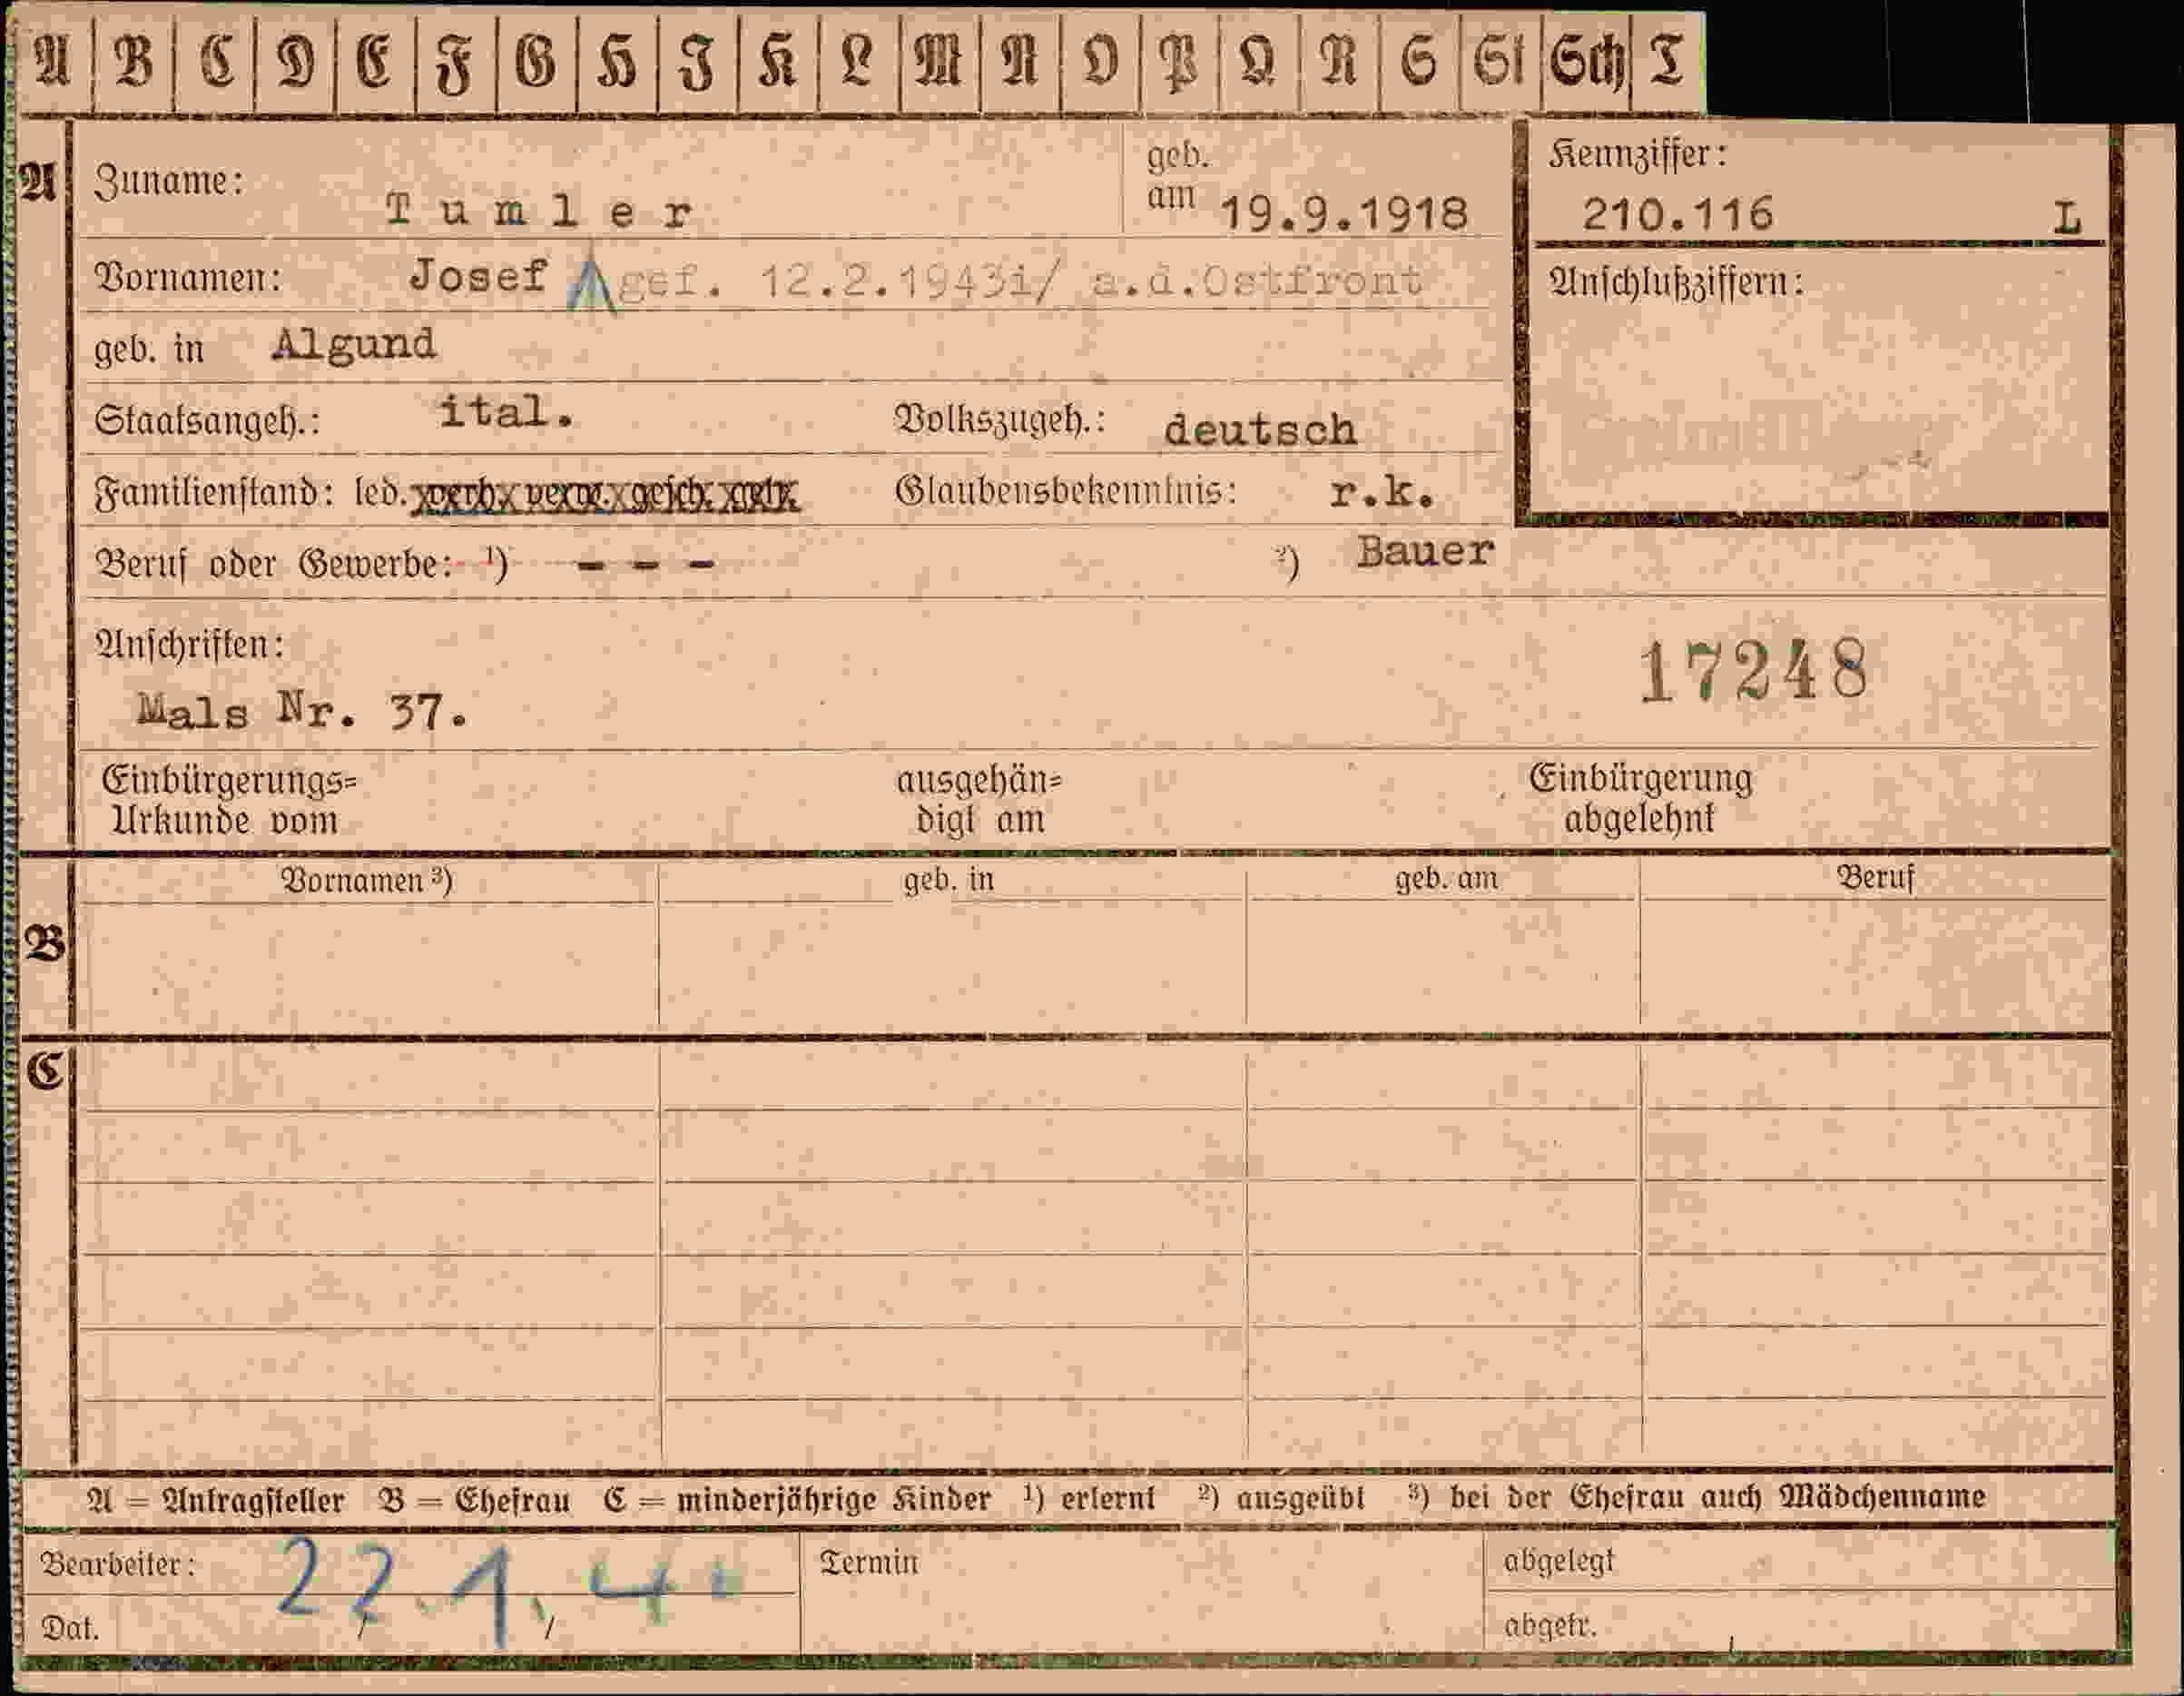 A B C D E F G H J K L M N O P Q R S St Sch T
A Zuname: Tumler geb. am 19.9.1918 Kennziffer: 210.116 L
Vornamen: Josef gef. 12.2.1943i/ a.d.Ostfront Anschlußziffern:
geb. in Algund
Staatsangeh.: ital. Volkszugeh.: deutsch
Familienstand: led. verh. verw. gesch. Glaubensbekenntnis: r.k.
Beruf oder Gewerbe: ¹) - - - ²) Bauer
Anschriften: 17248
Mals Nr. 37.
Einbürgerungs= ausgehän= Einbürgerung
Urkunde vom digt am abgelehnt
Vornamen ³) geb. in geb. am Beruf
B
C
A = Antragsteller B = Ehefrau C = minderjährige Kinder ¹) erlernt ²) ausgeübt ³) bei der Ehefrau auch Mädchenname
Bearbeiter: Termin abgelegt
Dat. abgefr.